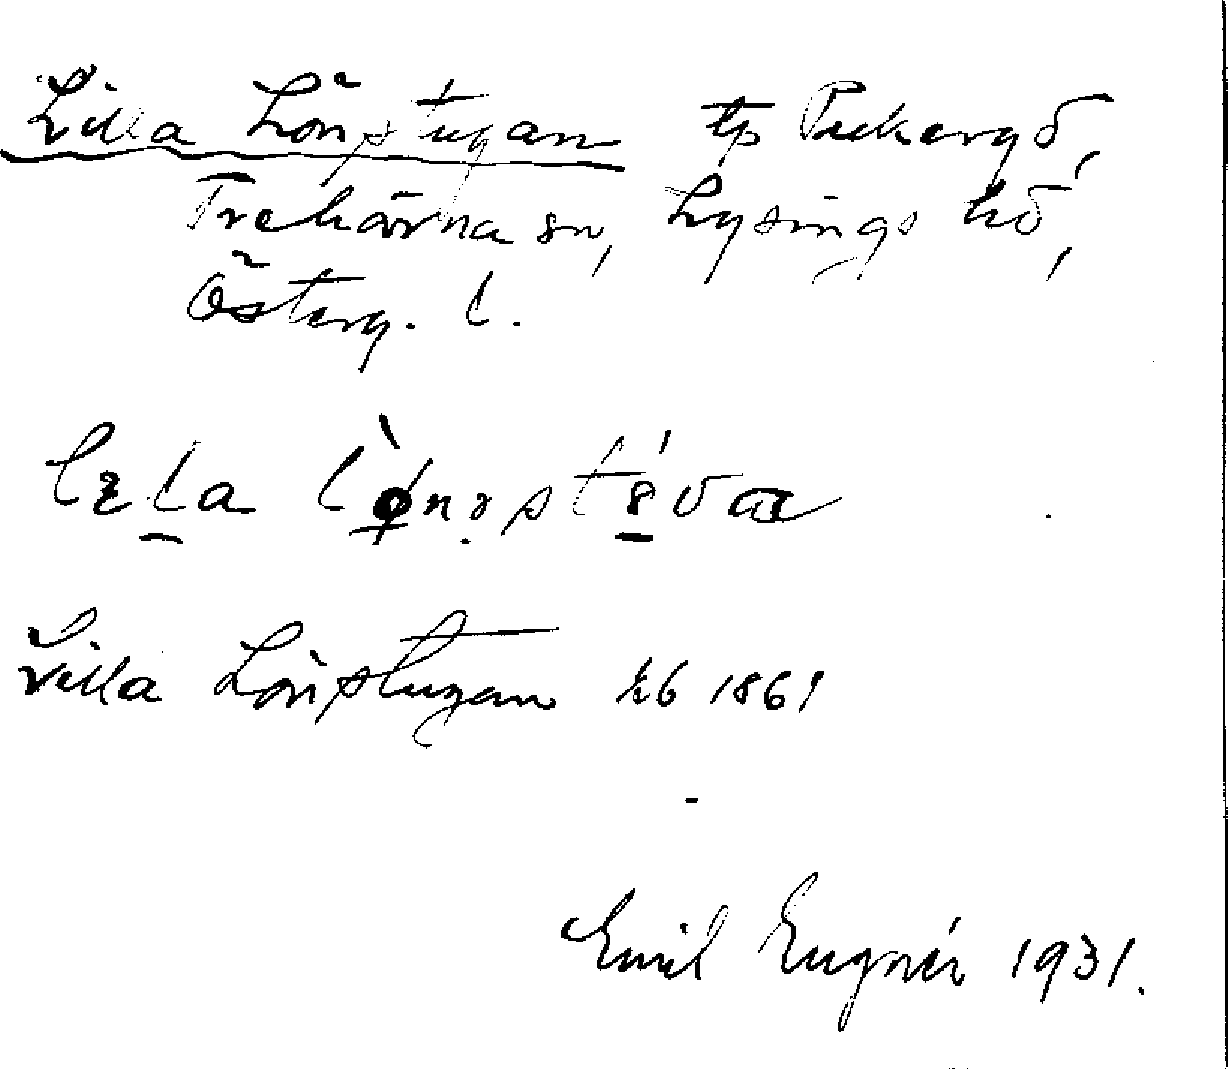 Lilla Lönstugan tp Pukergd,
Trehörna sn, Lysings hd,
Österg. l.
Lilla Lönstugan kb 1861
Emil Eugnér 1931.